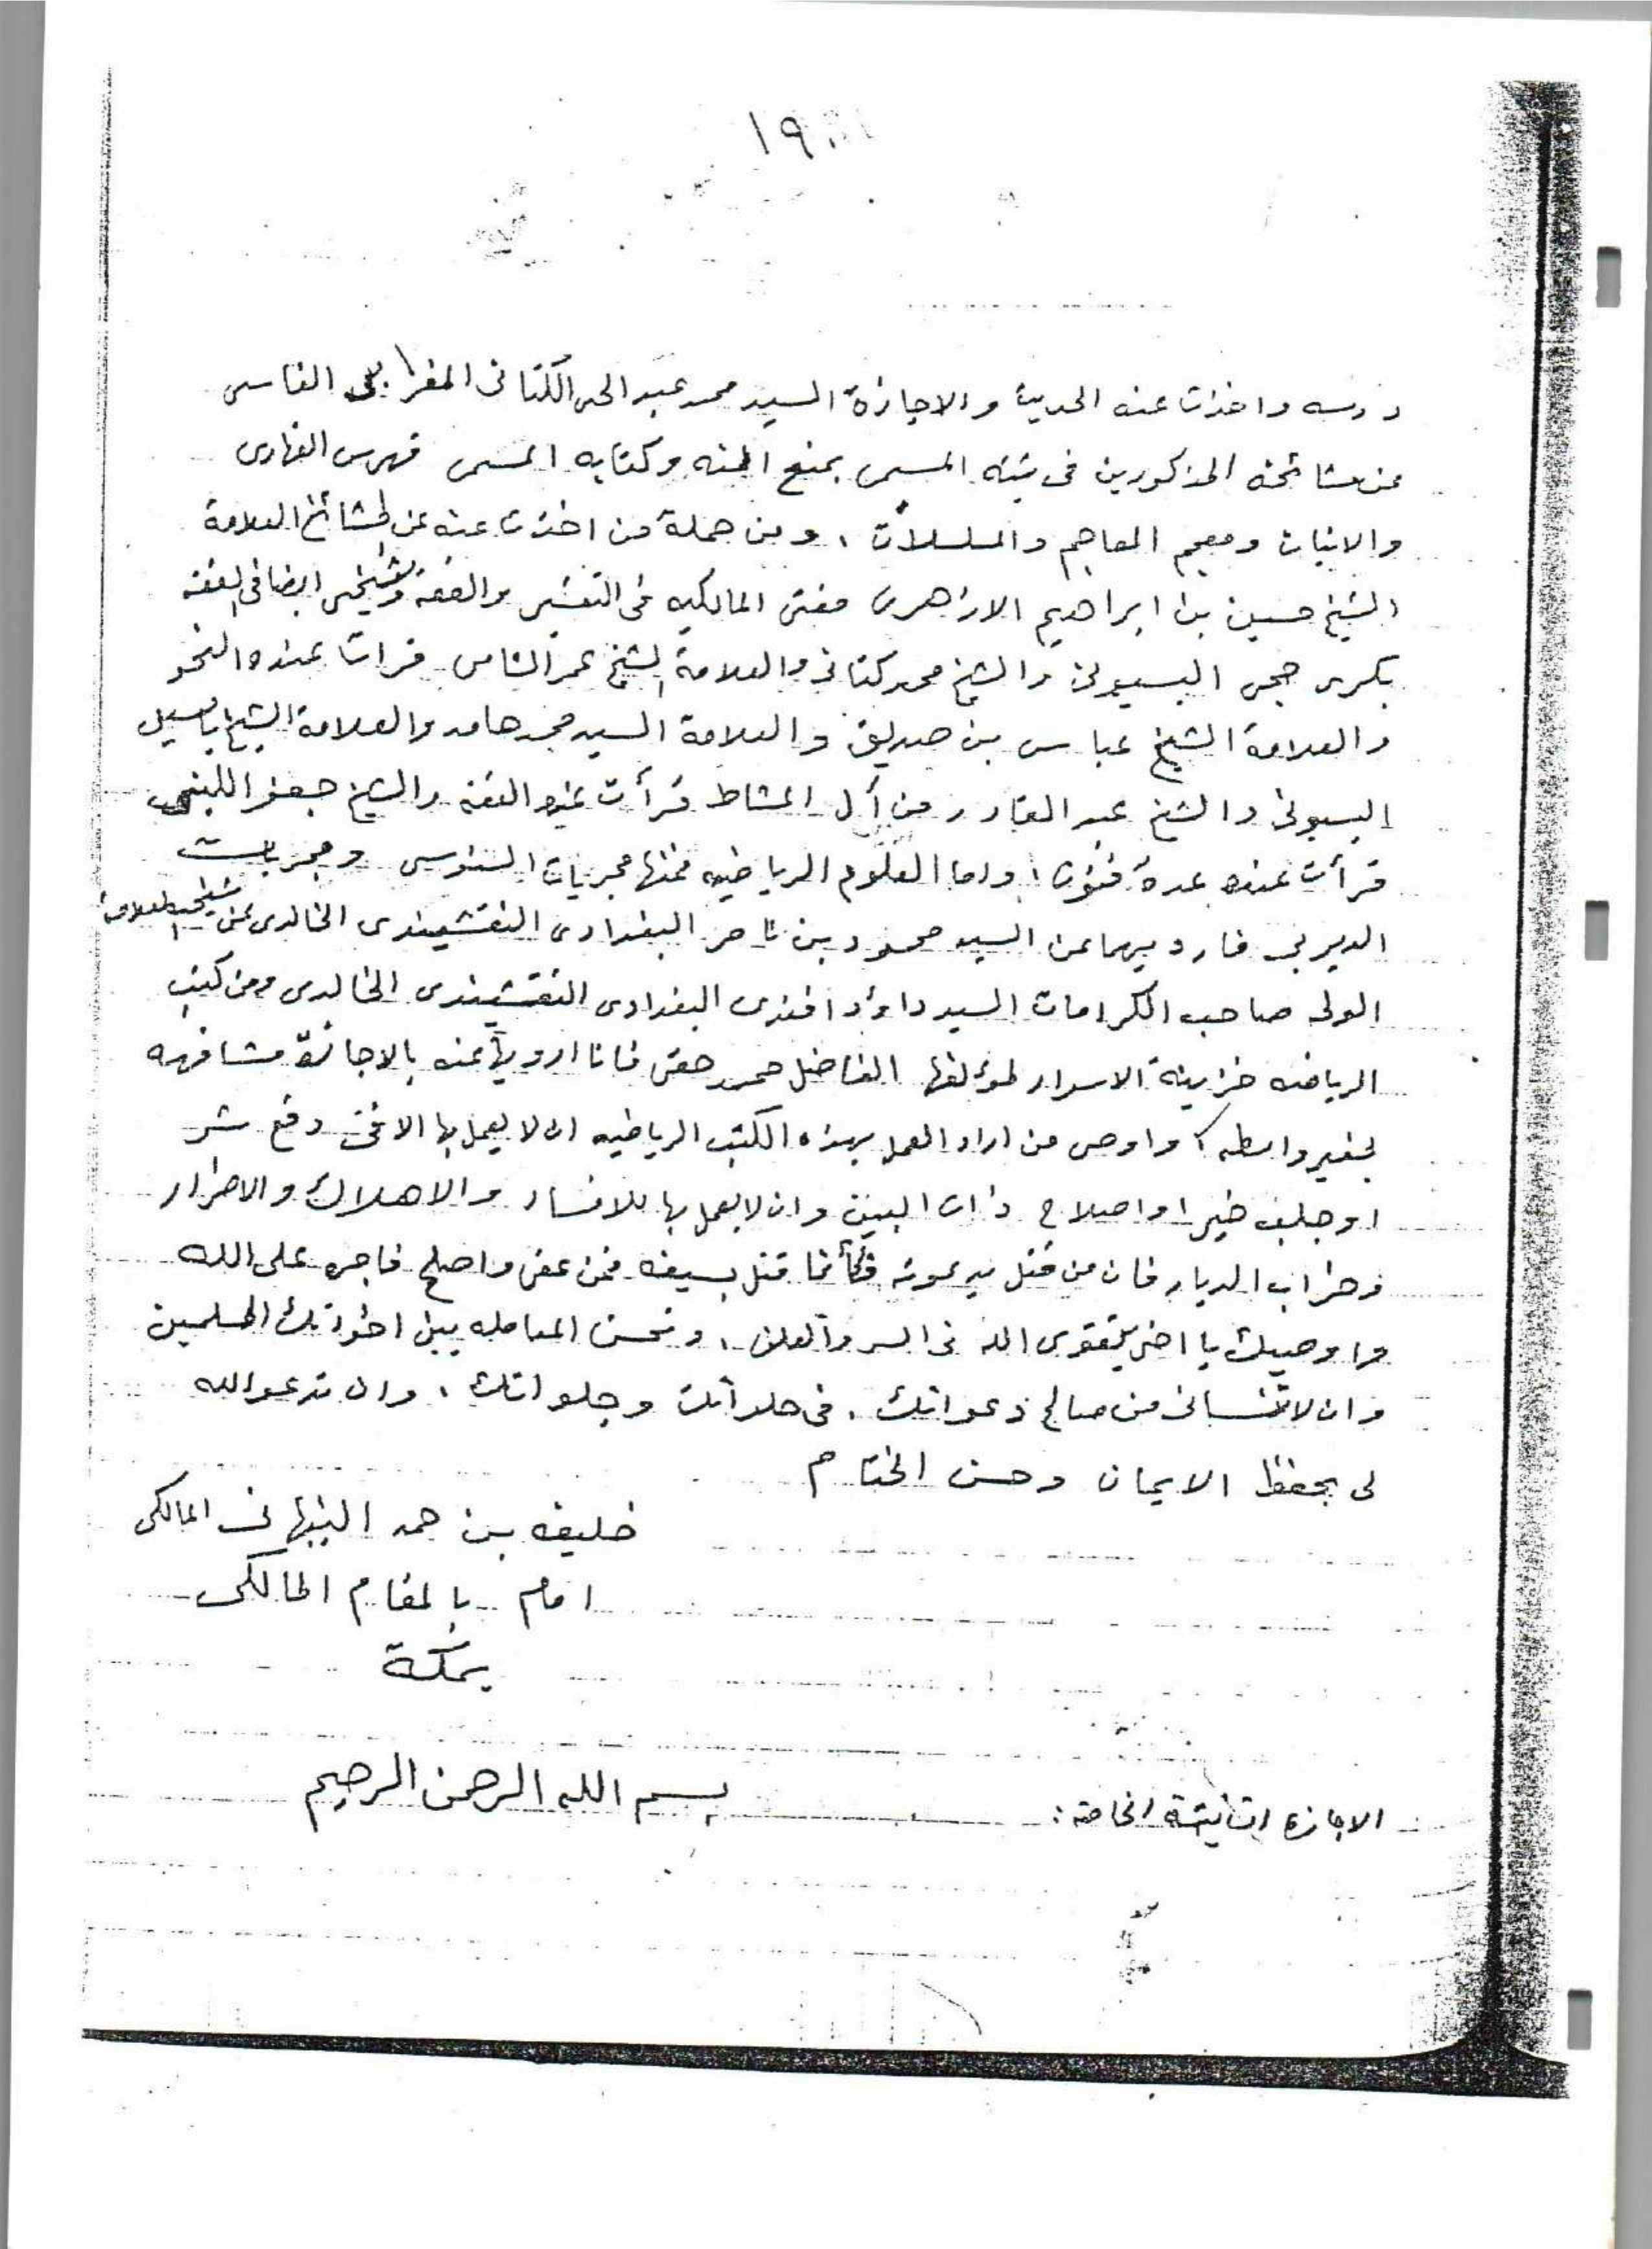 ١٩
درسه واخذت عنه الحديث والاجازة السيد محمد عبد الحي الكتاني المغرابي الفاسي
عن مشائخه المذكورين في ثبته المسمى بمنح المنه وكتابه المسمى فهرس الفهارى
والاثبات ومعجم المعاجم والمسلسلات ، ومن جملة من اخذت عنه من المشائخ العلامة
الشيخ حسين بن ابراهيم الازهرى مفتى المالكيه فى التفسير والفقه وشيخى ايضا فى الفقه
بكرى حجى البسيونى والشيخ محمد كتانى والعلامة الشيخ عمر الشامى قرات عنده النحو
والعلامة الشيخ عباس بن صديق والعلامة السيد محمد حامد والعلامة الشيخ
البسيونى والشيخ عبد القادر من آل المشاط قرأت عنده الفقه والشيخ جعفر اللبنى
قرأت عنده عدة فنون ، واما العلوم الرياضيه فمنها مجربات السنوسى ومجربات
الديربى فارويهما عن السيد محمود بن ناصر البغدادى النقشبندى الخالدى عن شيخه العلامة
الولى صاحب الكرامات السيد داؤد افندى البغدادى النقشبندى الخالدى ومن كتب
الرياضه خزينة الاسرار لمؤلفها الفاضل محمد حقى فانا ارويها عنه بالاجازة مشافهه
بغير واسطه واوصى من اراد العمل بهذه الكتب الرياضيه ان لا يعمل بها الا فى دفع شر
او جلب خير او اصلاح ذات البين وان لا يعمل بها للافساد والاهلاك والاضرار
وخراب الديار فان من قتل بدعوته فكأنما قتل بسيفه فمن عفى واصلح فاجره على الله
واوصيك يا اخى بتقوى الله فى السر والعلن ، وتحسن المعامله بين اخوتك المسلمين
وان لا تنسانى من صالح دعواتك ، فى خلواتك وجلواتك ، وان تدعو الله
لى بحفظ الايمان وحسن الختام
خليفه بن حمد النبهانى المالكى
امام بالمقام المالكى
بمكة
بسم الله الرحمن الرحيم
الاجازه الثانية الخاصة :